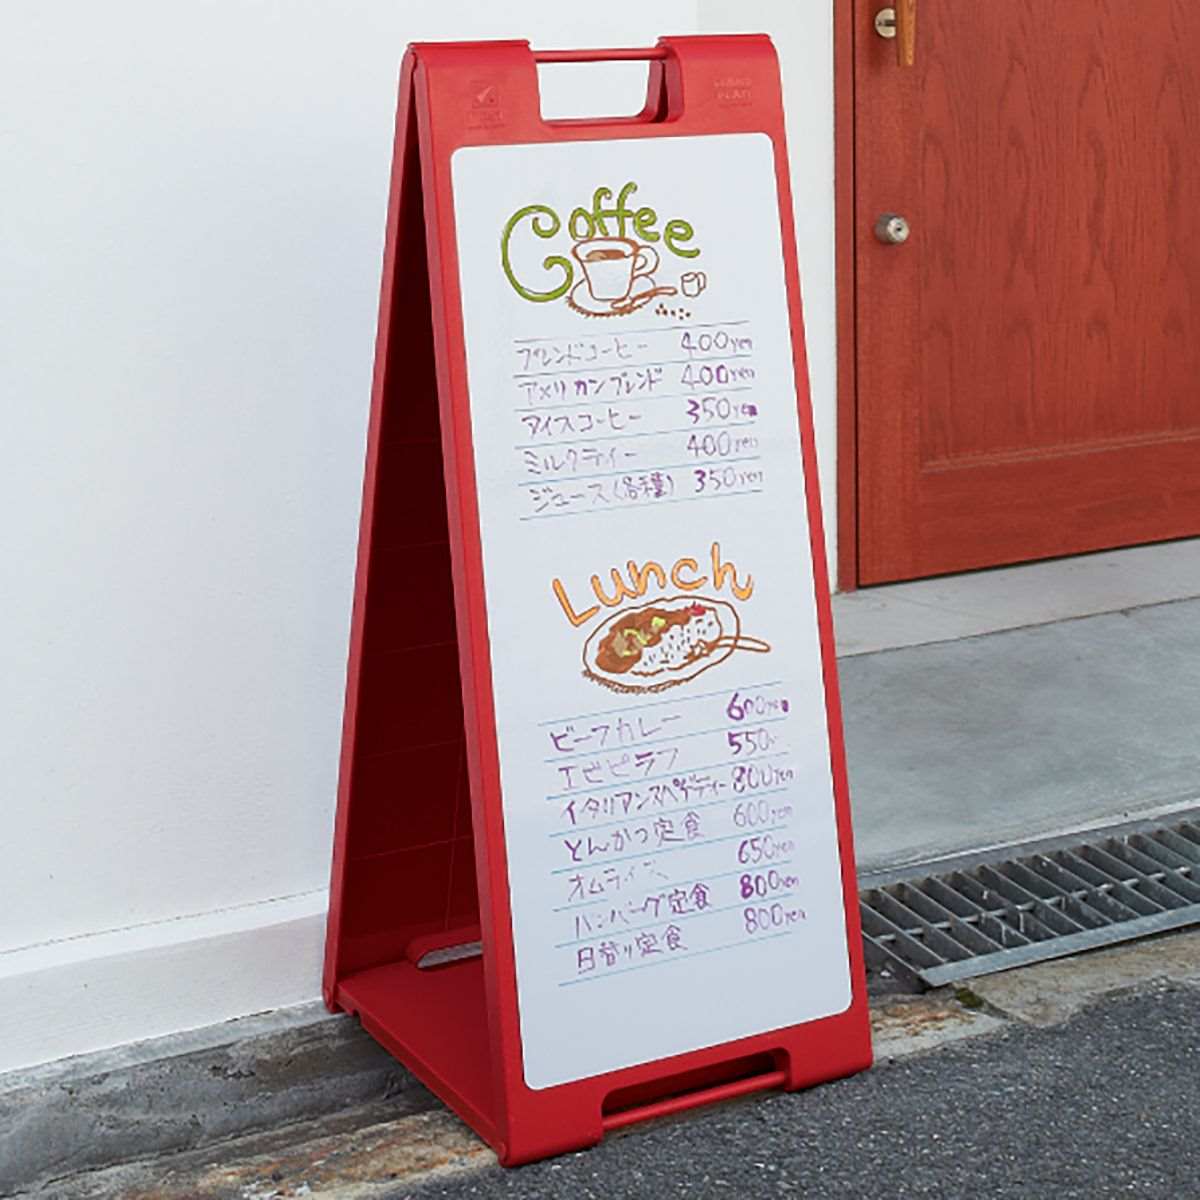 Coffee
ブレンドコーヒー 400yen
アメリカンブレンド 400yen
アイスコーヒー 350yen
ミルクティー 400yen
ジュース(各種) 350yen
Lunch
ビーフカレー 600yen
エビピラフ 550
イタリアンスパゲティー 800yen
とんかつ定食 600yen
オムライス 650yen
ハンバーグ定食 800yen
日替り定食 800yen